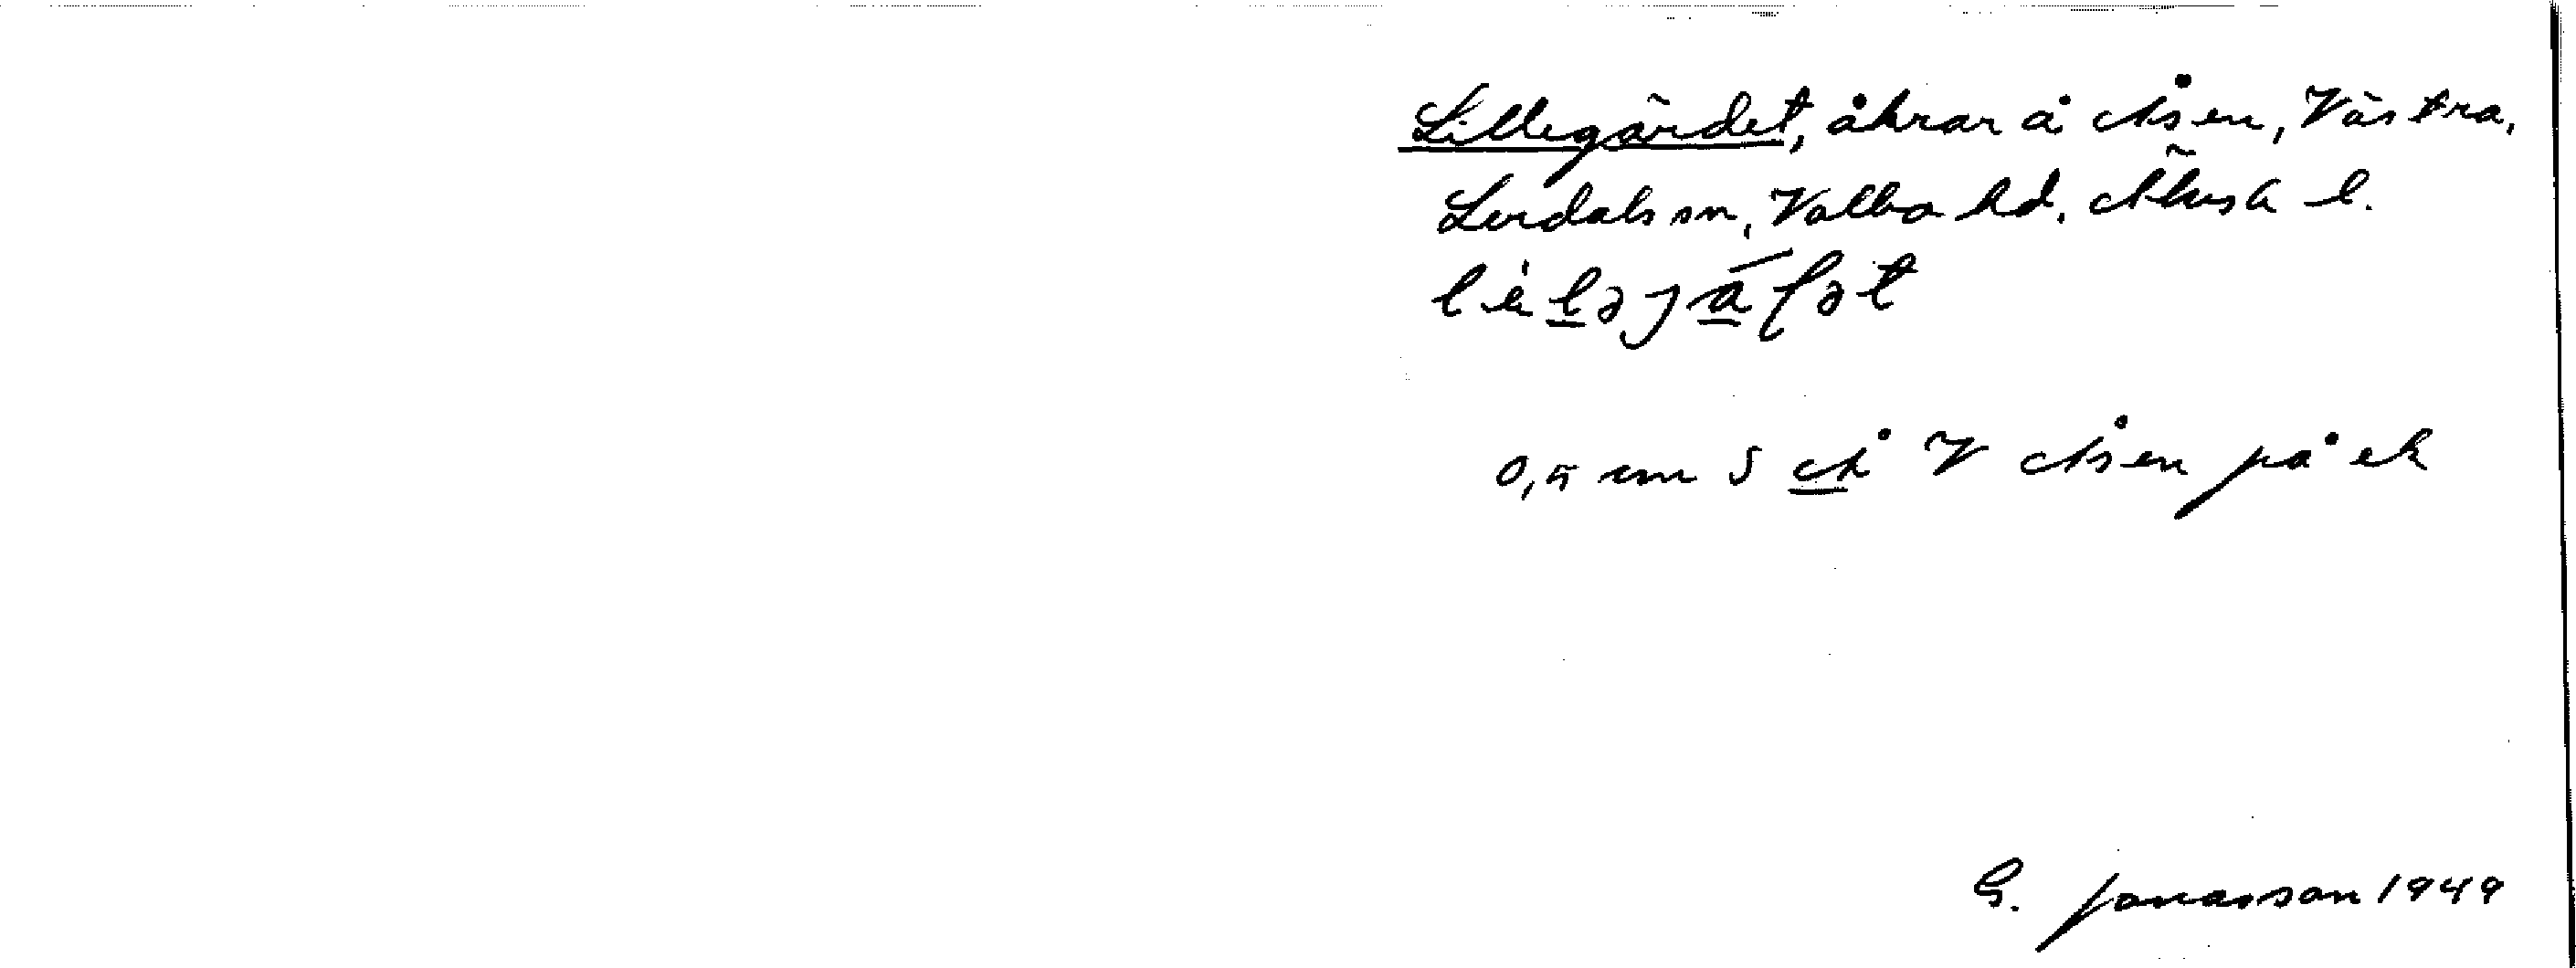 Lillegärdet, åkrar å Åsen, Västra,
Lerdals sn, Valbo hd. Älvsb l.
0,5 cm S Å i V Åsen på ek
G. Jonasson 1949